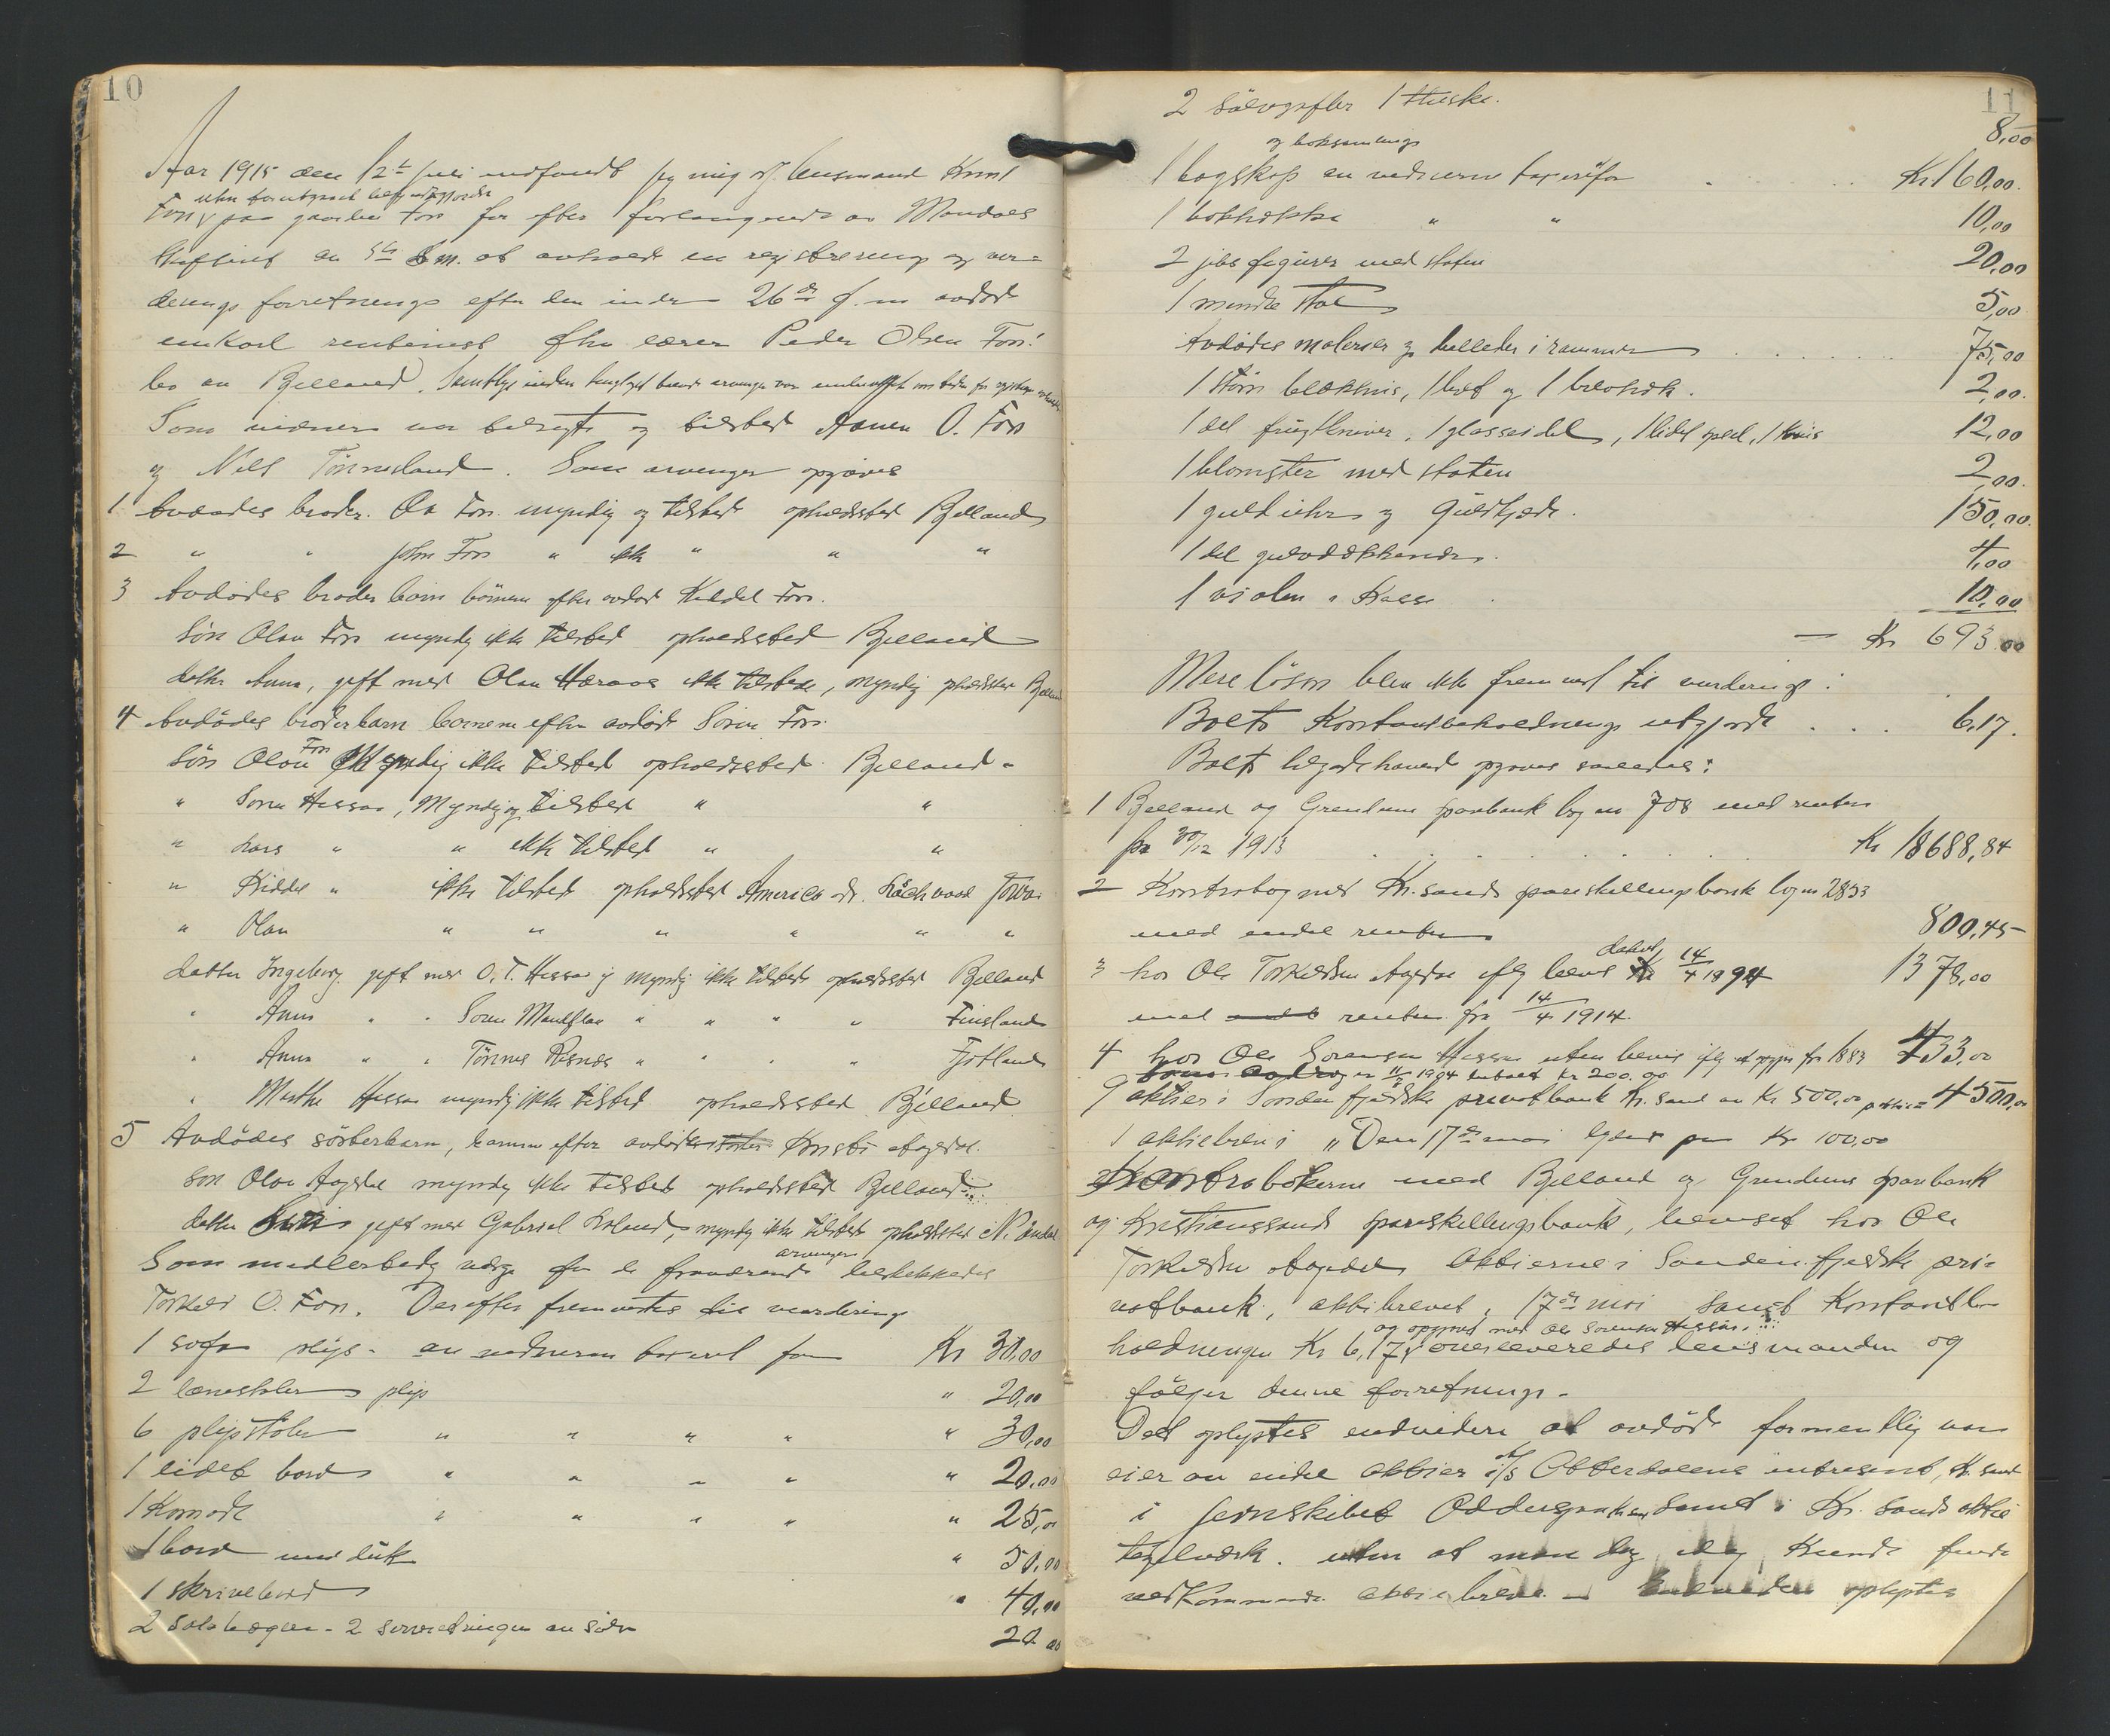 10
Aar 1915 den 12te juli indfandt jeg mig lensmand Knut
uten forutgaaet
Foss paa gaarden Foss for efter forlangende av Mandals
skifteret av 5te ds m. at avholde en registrering og vur-
derings forretning efter den under 26de f.m avdøde
unkarl rentenist fhv lærer Peder Olsen Foss
bo av Bjelland. Samtlige inden
Som vidner var tilsagte og tilstede Aanen O. Foss
og Nils Tønnesland. Som arvinger opgaves
1 Avdødes broder. Ole Foss myndig og tilstede opholdssted Bjelland
2 " " John Foss " ikke " " "
3 Avdødes broderbørn børnene efter avdøde Keddel Foss.
Søn Olav Foss myndig ikke tilsted opholdssted Bjelland
datter Anna, gift med Olav Heraas ikke tilstede, myndig opholdssted Bjelland
4 Avdødes broderbarn børnene efter avdøde Søren Foss
Søn Olav Foss Myndig ikke tilsted opholdssted Bjelland
" Søren Hessaa, Myndig og tilsted " "
" Lars " " ikke tilsted " "
" Kiddel " ikke tilsted opholdssted America adr. Lockwood Jowa
" Olav " " " " " "
datter Ingeborg gift med O. T. Hessaa og myndig ikke tilstede opholdssted Bjelland
" Anna " " Søren " " " " Finsland
" Anna " " Tønnes Risnes " " " " Fjotland
" Marthe Hessaa myndig ikke tilsted opholdssted Bjelland
5 Avdødes søsterbarn, barnene efter avdøde søster Kristi Aagedal.
Søn Olav Aagedal myndig ikke tilsted opholdssted Bjelland
datter gift med Gabriel Loland, myndig ikke tilstede opholdssted N. Audn
arvinger
Som midlertidig værge for de fraværende beskikkedes
Torkeld O. Foss. Derefter fremvistes til vurdering
1 sofa plys - av vidnerne taxeret for Kr 30,00
2 lænestoler plys " 20,00
6 plysstoler " " " " " 30,00
1 lidet bord " " " " " 20,00
1 Komode " " " " " 25,00
1 bord med duk " 50,00
1 skrivebord " 40,00
2 sølvbægere - 2 servietringer av sølv 20,00
11
2 sølvgafler 1 theske. 8,00
og boksamling
1 bogskap av vidnerne taxert for Kr 160,00.
1 bokhække " " 10,00
2 jibsfigurer med staten 20,00
1 mindre stol 5,00
Avdødes malerier og billeder i rammer 75,00
1 større blækhus, 1 og 1 2,00.
1 del frugtkniver, 1 glasseidel, 1 lidet speil, 12,00
1 blomster med staten 2,00.
1 guld uhr og guldkjede. 150,00.
1 del gulvdækkener. 4,00
1 violin i Kasse 10,00
— Kr 693.00
Mere løsøre blev ikke fremvist til vurdering:
Boets Kontantbeholdning utgjorde . . . 6,17.
Boets tilgodehavende opgaves saaledes:
1 Bjelland og Grendum sparbank bog no 708 med renter
fra 30/12 1913 Kr 18688,84
2 Kontrabog med Kr.sands sparskillingsbank bog no 2833
med endel renter 800,45
3 hos Ole Torkeldsen Aagedal iflg bevis datert 14/4 1894 1378,00
med renter fra 14/4 1914.
4 hos Ole Sørensen Hessaa uten bevis iflg opgjør fra 1883 433,00
11/2 1904 betalt kr 200.00
9 aktier i Søndenfjeldske privatbank Kr.sand av Kr 500,00 pr aktie = 4500,00
1 aktiebrev i "Den 17de mai lydende paa Kr 100,00
Kontrabøkerne med Bjelland og Grendums sparbank
og Kristianssands sparskillingsbank, beviset hos Ole
Torkeldsen Aagedal Aktierne i Søndenfjeldske pri-
vatbank, aktiebrevet i 17de mai samt Kontantbe-
og opgjøret med Ole Sørensen Hessaa.
holdningen Kr 6,17, overleveredes lensmanden og
følger denne forretning.
Det oplystes endvidere at avdøde formentlig var
eier av endel aktier i A/S Otterdalens intresent, Kr. sand
i Jernskibet Oddersjaa samt i Kr. sands aktie
teglverk. uten at man dog idag Kunde finde
vedkommende aktiebreve. — oplystes